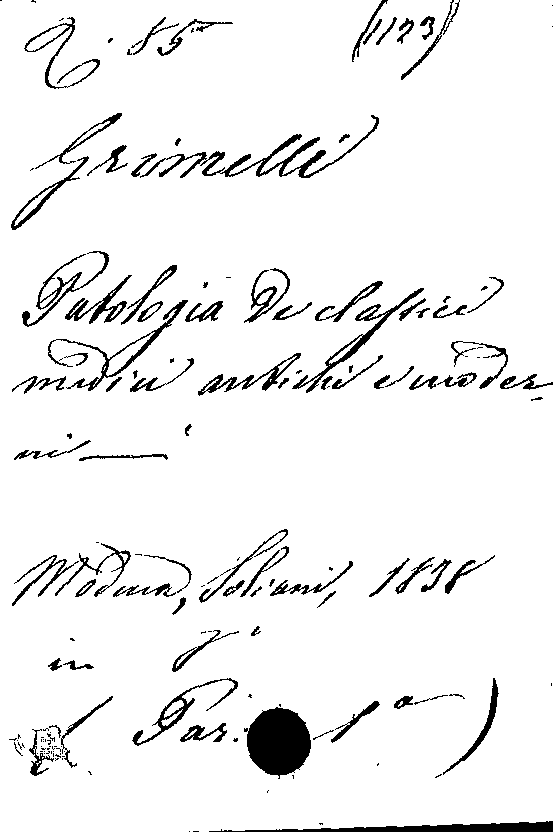 2. 85 (1123)
Grimelli
Patologia de classici
medici antichi e moder-
ni —
Modena, Soliani, 1838
in
( Par. 1a )